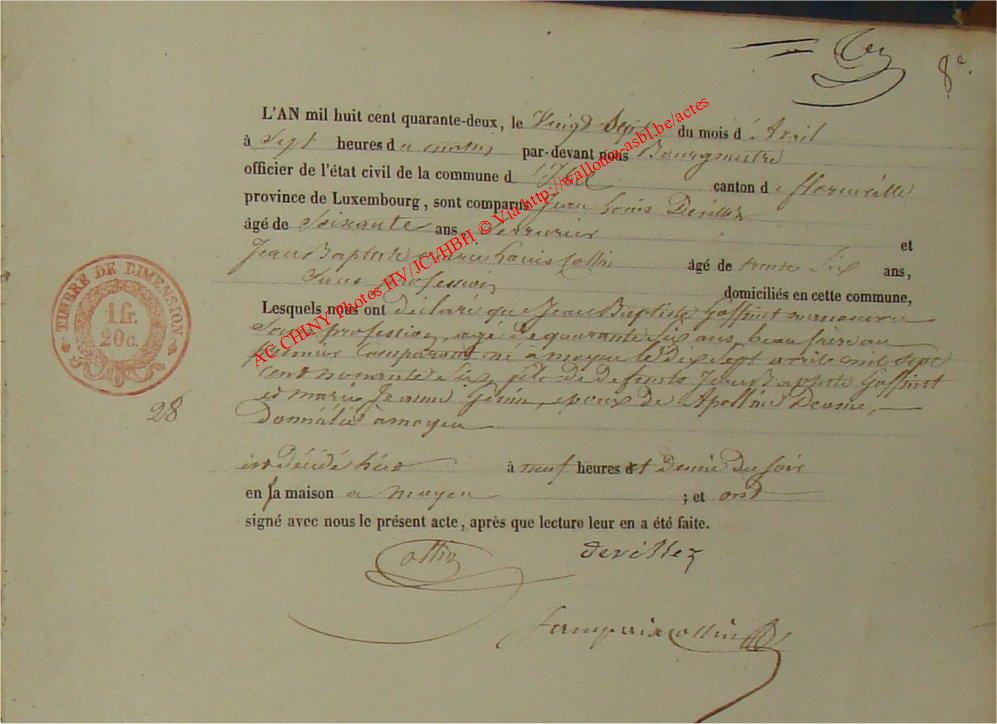 8e
L'AN mil huit cent quarante-deux, le Vingt Sept du mois d'Avril
à Sept heures du matin par-devant nous Bourgmestre
officier de l'état civil de la commune d'Izel canton de florenville
province de Luxembourg, sont comparus Jean Louis Devillez
âgé de Soixante ans, Serrurier et
Jean Baptiste Louis Collin âgé de trente Six ans,
Sans profession domiciliés en cette commune,
Lesquels nous ont déclaré que Jean Baptiste Goffinet
Sans profession, agé de quarante Six ans, beau frère au
premier Comparant né à moyen le dix Sept avril mil Sept
Cent nonante Six, fils de defunts Jean Baptiste Goffinet
et marie Jeanne, époux de Apolline
Domicilié à moyen
est Décédé hier à neuf heures et demie du soir
en sa maison a moyen ; et ont
signé avec nous le présent acte, après que lecture leur en a été faite.
TIMBRE DE DIMENSION
1 fr.
20 c.
28
AC CHINY Photos HV/JC1/HBH © Via http://wallonia-asbl.be/actes
Collin devillez
françois collin